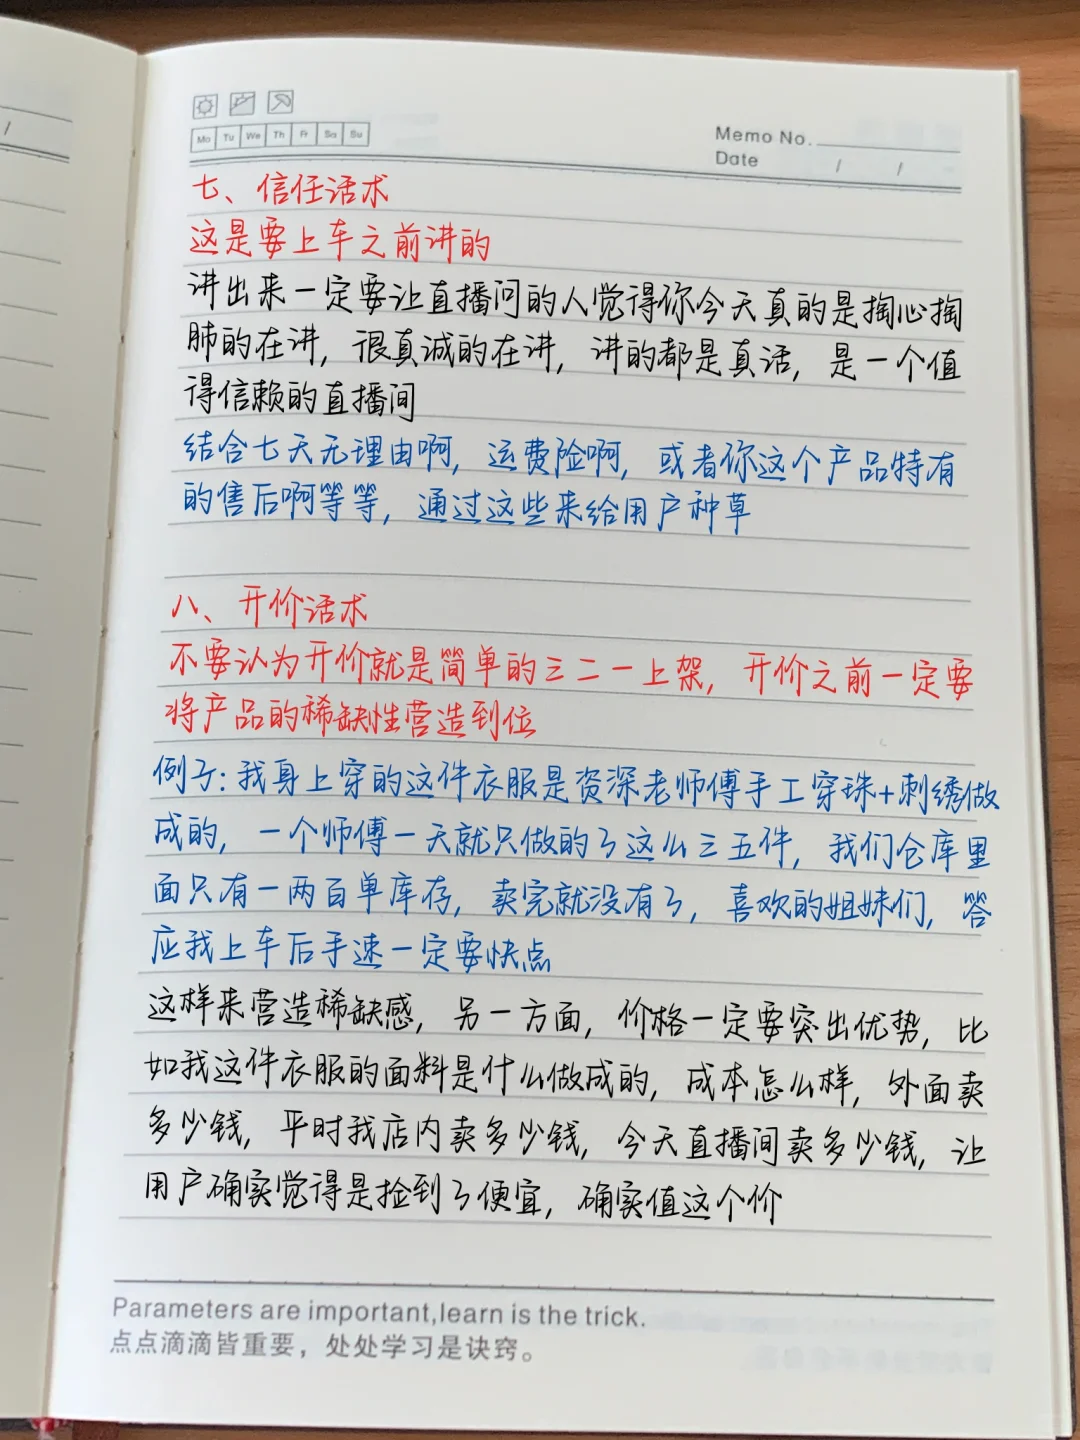 Mo Tu We Th Fr Sa Su
Memo No.
Date / /
七、信任话术
这是要上车之前讲的
讲出来一定要让直播间的人觉得你今天真的是掏心掏
肺的在讲，很真诚的在讲，讲的都是真话，是一个值
得信赖的直播间
结合七天无理由啊，运费险啊，或者你这个产品特有
的售后啊等等，通过这些来给用户种草
八、开价话术
不要认为开价就是简单的三二一上架，开价之前一定要
将产品的稀缺性营造到位
例子：我身上穿的这件衣服是资深老师傅手工穿珠+刺绣做
成的，一个师傅一天就只做的了这么三五件，我们仓库里
面只有一两百单库存，卖完就没有了，喜欢的姐妹们，答
应我上车后手速一定要快点
这样来营造稀缺感，另一方面，价格一定要突出优势，比
如我这件衣服的面料是什么做成的，成本怎么样，外面卖
多少钱，平时我店内卖多少钱，今天直播间卖多少钱，让
用户确实觉得是捡到了便宜，确实值这个价
Parameters are important,learn is the trick.
点点滴滴皆重要，处处学习是诀窍。